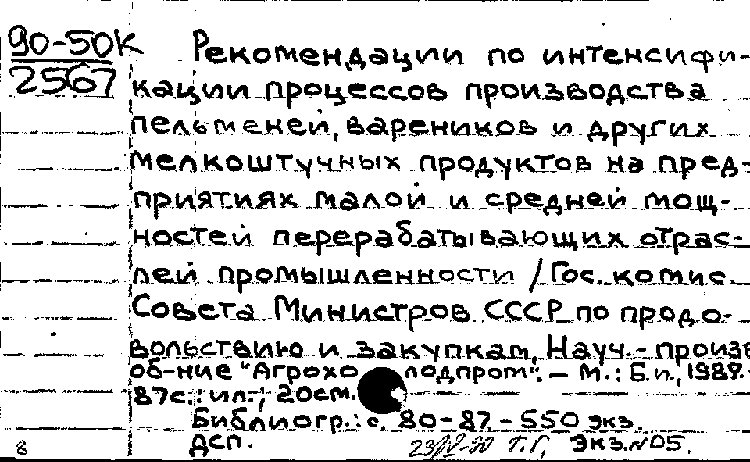 90-50К
2567
Рекомендации по интенсифи-
кации процессов производства
пельменей, вареников и других
мелкоштучных продуктов на пред-
приятиях малой и средней мощ-
ностей перерабатывающих отрас-
лей промышленности / Гос. комис.
Совета Министров СССР по продо-
вольствию и закупкам, Науч.- произв
об-ние "Агрохолодпром". - М.: Б.и., 1989.-
87с.: ил.; 20см.
Библиогр.: с. 80-87. - 550 экз.
ДСП.
Т.Г. Экз.N05.
8